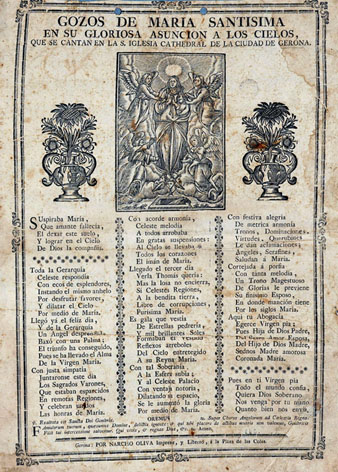 GOZOS DE MARIA SANTISIMA
EN SU GLORIOSA ASUNCION A LOS CIELOS,
QUE SE CANTAN EN LA S. IGLESIA CATHEDRAL DE LA CIUDAD DE GERONA.
SUspiraba Maria,
Que amante fallecia,
El dexar este suelo,
Y lograr en el Cielo
De Dios la compañia.
Toda la Gerarquia
Celeste respondia
Con ecos de esplendores,
Instando el mismo anhelo
Por desfrutar favores,
Y dilatar el Cielo
Por medio de Maria.
Llegó yá el feliz dia,
Y de la Gerarquia
Un Angel
Baxó con una Palma:
El triunfo ha conseguido,
Pues se ha llevado el Alma
De la Virgen Maria.
Con justa simpatia
Juntaronse este dia
Los Sagrados Varones,
Que estaban esparcidos
En remotas Regiones,
Y celebran
Las honras de Maria.
Con acorde armonia,
Celeste melodia
A todos arrobaba
En gratas suspensiones:
Al Cielo se llevaba
Todos los corazones
El imán de Maria.
Llegado el tercer dia
Verla Thomás queria:
Mas la losa no encierra,
Si Celestes Regiones
A la bendita tierra,
Libre de corrupciones,
Purisima Maria.
Es gala que vestia
De Estrellas pedreria
Y mil brillantes Soles
Formaban el
Reflexos arreboles
Del Cielo
A su Reyna Maria.
Con tal Soberania
A la Esfera subia;
Y al Celeste Palacio
Con ventaja notoria,
Dilatando el espacio,
Se le aumentó la gloria
Por medio de Maria.
Con festiva alegria
De metrica armonía
Tronos, Dominaciones,
Virtudes, Querubines
Le dan aclamaciones;
Angeles, Serafines,
Saludan á Maria.
Cortejada á porfia
Con tanta melodia,
Un Trono Magestuoso
De Gloria le previene
Su finisimo Esposo,
En donde mansion tiene
Por los siglos Maria.
Aqui tu Abogacia
Egerce Virgen pia;
Pues Hija de Dios Padre,
Del Hijo de Dios Madre,
Sednos Madre amorosa
Coronada Maria.
Pues en ti Virgen pia
Todo el mundo confia,
Quiera Dios Soberano
Nos venga por tu mano
Quanto bien nos envia.
OREMUS
Gerona: POR NARCISO OLIVA Impresor, y Librero, á la Plaza de las Coles